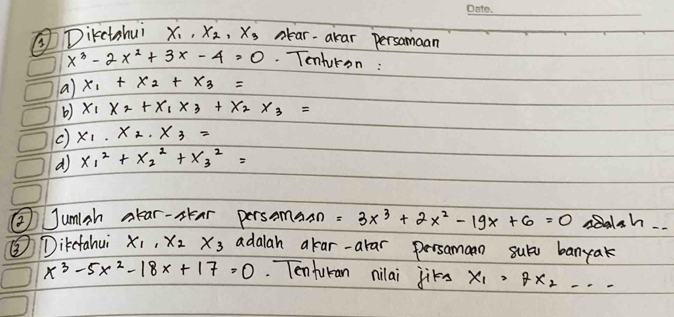 Date.
① Diketahui X₁, X₂, X₃ akar-akar persamaan
x³ - 2x² + 3x - 4 = 0. Tentukan :
a) x₁ + x₂ + x₃ =
b) x₁ x₂ + x₁ x₃ + x₂ x₃ =
c) x₁ . x₂ . x₃ =
d) x₁² + x₂² + x₃² =
② Jumlah akar-akar persamaan = 3x³ + 2x² - 19x + 6 = 0 adalah ...
③ Diketahui x₁, x₂ x₃ adalah akar-akar persamaan suku banyak
x³ - 5x² - 18x + 17 = 0. Tentukan nilai jika x₁ = 2x₂ ...